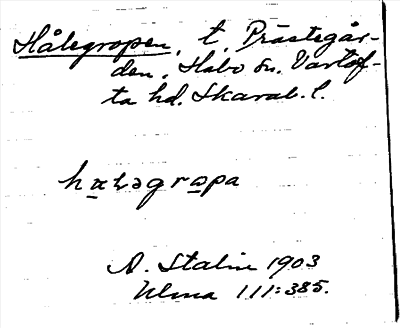 Hålegropen, t. Prästegår-
den, Habo sn. Vartof-
ta hd. Skarab. l.
A. Stalin 1903
Ulma 111:385.